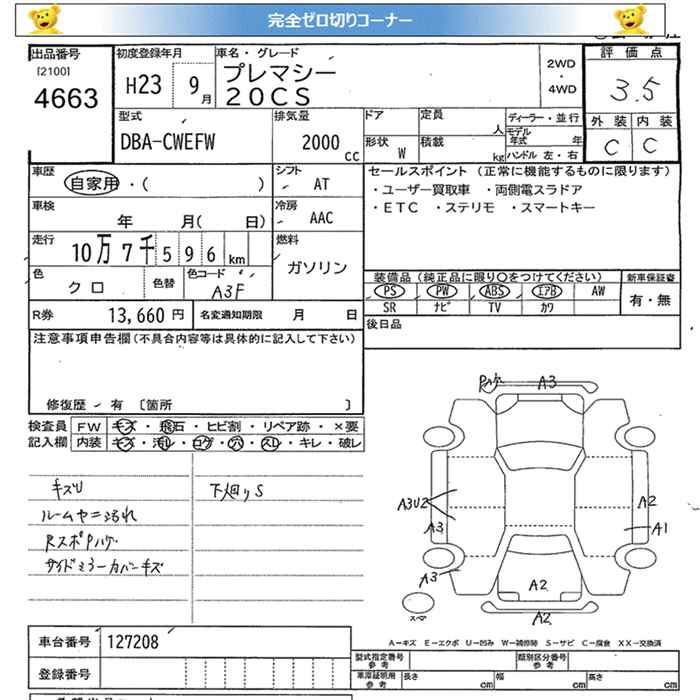 完全ゼロ切りコーナー
出品番号
[2100]
4663
初度登録年月
H23 9月
車名・グレード
プレマシー
20CS
2WD
・
4WD
評価点
3.5
外装 内装
C C
型式
DBA-CWEFW
排気量
2000 cc
ドア
定員
人
形状
W
積載
kg
ディーラー・並行
モデル年式 年
ハンドル 左・右
車歴
自家用・( )
シフト
AT
車検
年 月( 日)
冷房
AAC
走行
10万7千596km
燃料
ガソリン
色
クロ
色替
色コード
A3F
セールスポイント (正常に機能するものに限ります)
・ユーザー買取車 ・両側電スラドア
・ETC ・ステリモ ・スマートキー
装備品(純正品に限り〇をつけてください)
PS PW ABS エアB AW
SR ナビ TV カワ
新車保証書
有・無
R券 13,660円
名変通知期限 月 日
後日品
注意事項申告欄(不具合内容等は具体的に記入して下さい)
修復歴・有 [箇所 ]
検査員記入欄
FW キズ・飛石・ヒビ割・リペア跡・×要
内装 キズ・汚れ・コゲ・穴・スレ・キレ・破レ
キズU
下廻りS
ルームヤニ汚れ
RスポPハゲ
サイドミラーカバーキズ
Pハゲ
A3
A3U2
A3
A3
A2
A1
A2
A2
スペア
A-キズ E-エクボ U-凹み W-補修跡 S-サビ C-腐食 XX-交換済
車台番号 127208
登録番号
型式指定番号 参考
類別区分番号 参考
車庫証明用 参考
長さ cm
幅 cm
高さ cm